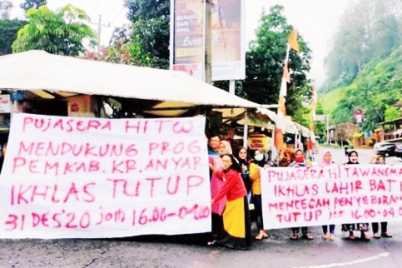 PUJASERA HITW
MENDUKUNG PROG
PEMKAB. KR. ANYAR
IKHLAS TUTUP
31 DES'20 JAM 16.00-04.00
PUJASERA HITAWANGMA
IKHLAS LAHIR BATI
MENCEGAH PENYEBARAN
TUTUP